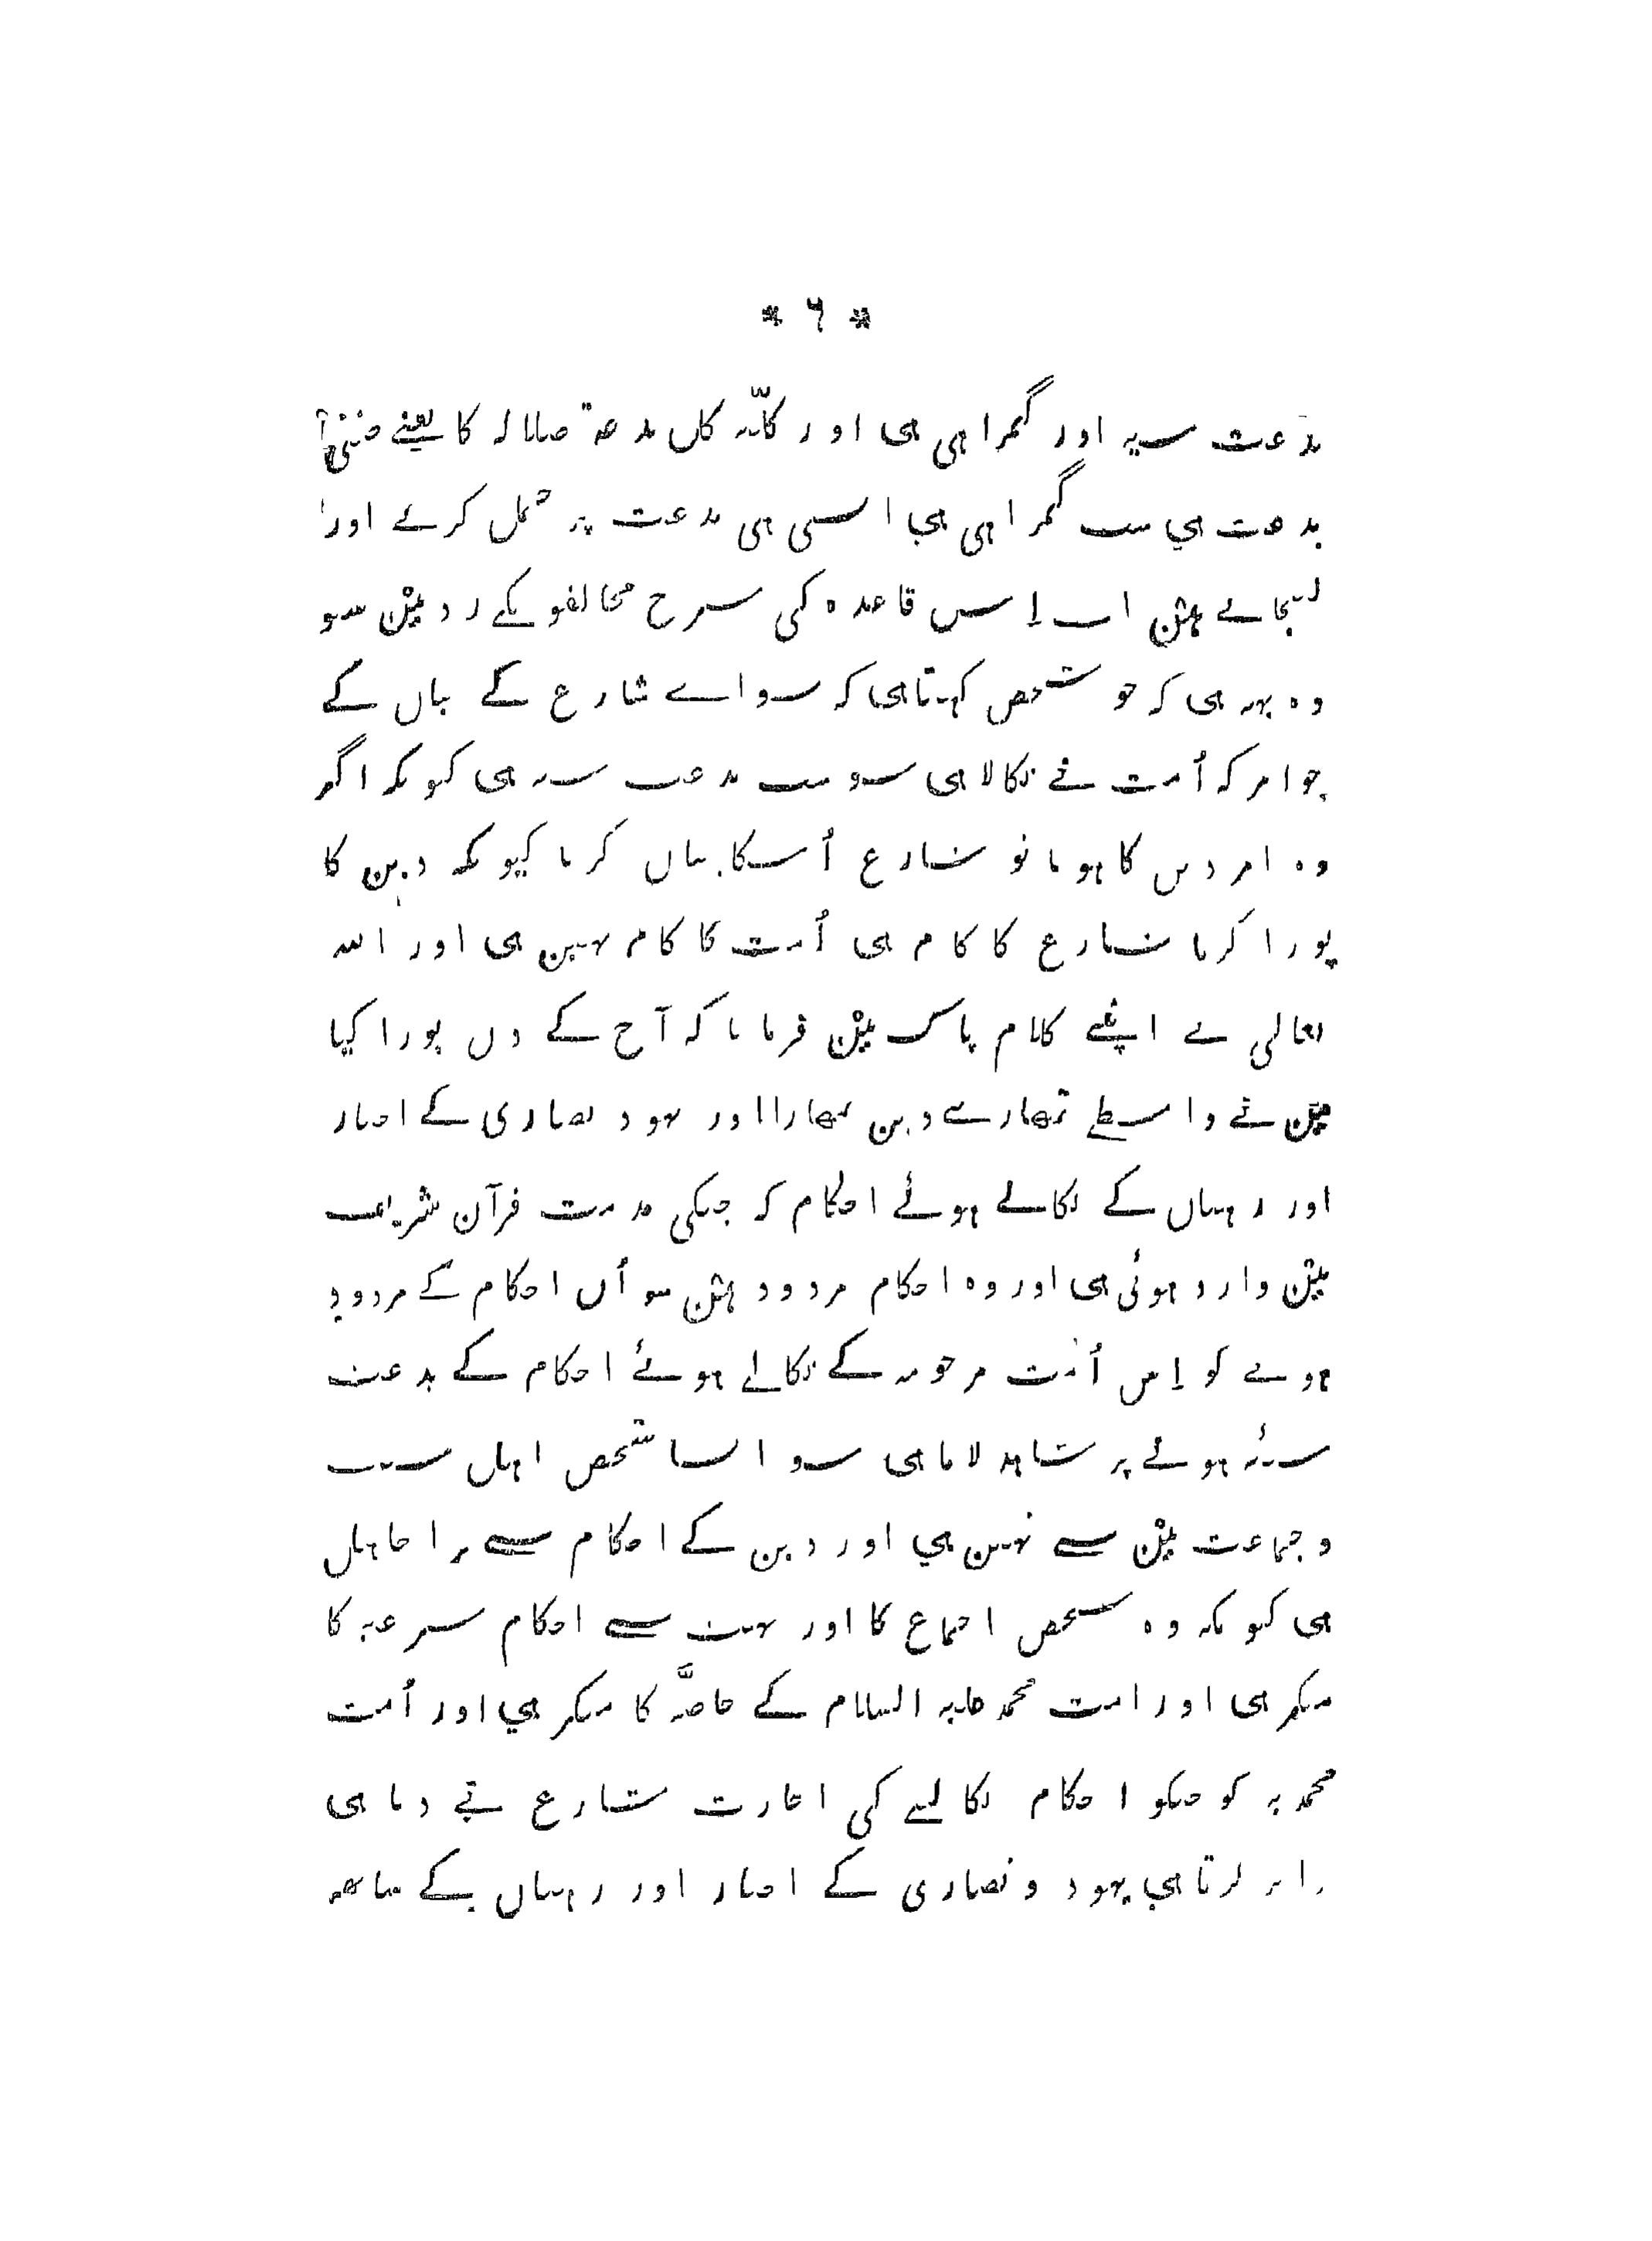 * ٦ *
بدعت سیہ اور گمراہی ہی اور کلّیہ کل بدعة ضلالہ کا یعنے جتنی
بدعت ہی سب گمراہی ہی اسی ہی بدعت پر عمل کرتے اور
لیجاتے ہیْن اب اِس قاعدہ کی شرح مخالفو نکے رد میْن سو
وہ یہہ ہی کہ جو شخص کہتاہی کہ سواے شارع کے بیاں کے
جو امر کہ اُمت نے نکالا ہی سو سب بدعت سیہ ہی کیو نکہ اگر
وہ امر دین کا ہوتا تو شارع اُسکا بیاں کرتا کیو نکہ دین کا
پورا کرنا شارع کا کام ہی اُمت کا کام نہین ہی اور اللہ
تعالی نے اپنے کلام پاک میْن فرمایا کہ آج کے دں پورا کیا
میْن نے واسطے تمھارے دین تمھارا اور یہود نصاری کے احبار
اور رہباں کے نکالے ہوئے احکام کہ جسکی مذمت قرآن شریف
میْن وارد ہوئی ہی اور وہ احکام مردود ہیْن سو اُں احکام کے مردود
ہونے کو اِس اُمت مرحومہ کے نکالے ہوئے احکام کے بدعت
سیئہ ہونے پر شاہد لاتاہی سو ایسا شخص اہل سنت
و جماعت میْن سے نہین ہی اور دین کے احکام سے برا جاہل
ہی کیو نکہ وہ شخص اجماع کا اور بہت سے احکام شرعیہ کا
منکر ہی اور امت محمد علیہ السلام کے خاصّہ کا منکر ہی اور اُمت
محمدیہ کو جسکو احکام نکالنے کی اجازت شارع نے دیا ہی
برابر کرتا ہی یہود و نصاری کے احبار اور رہباں کے ساتھہ